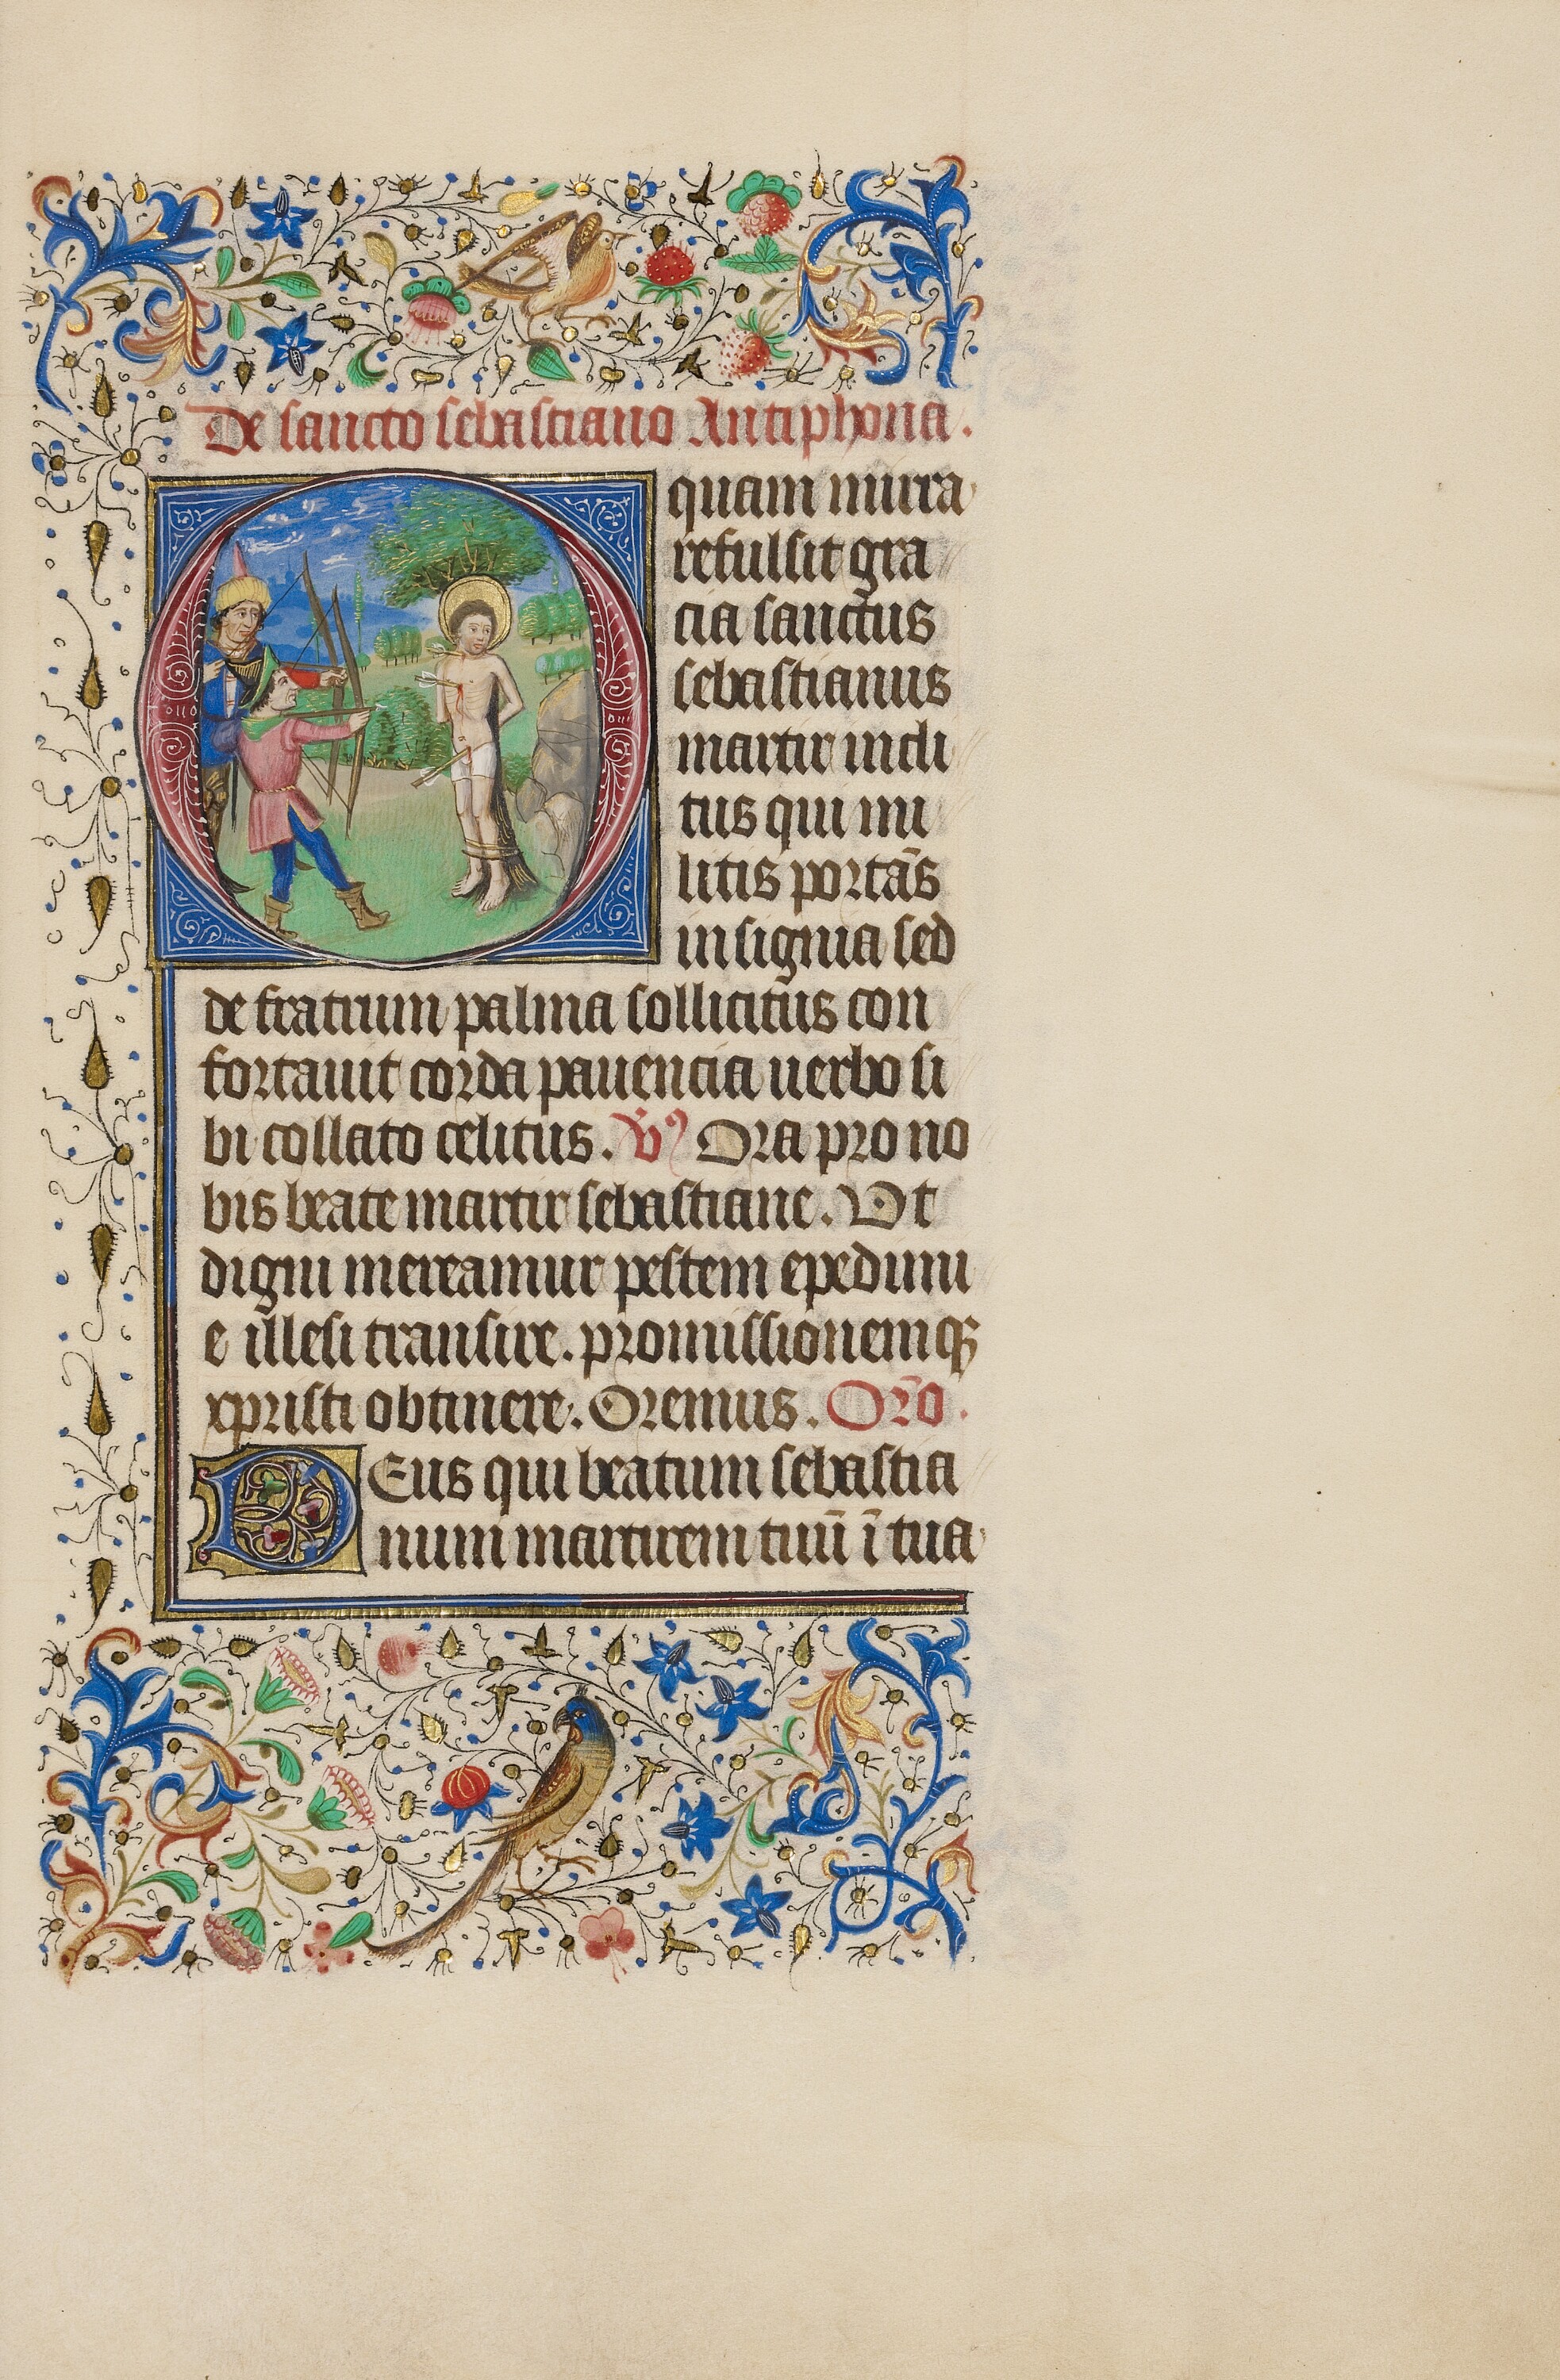 De sancto sebastiano Antiphona.
O quam mira
refulsit gra
cia sanctus
sebastianus
martir incli
tus qui mi
litis portãs
insignia sed
de fratrum palma sollicitus con
fortauit corda pauencia uerbo si
bi collato celitus. V̾ Ora pro no
bis beate martir sebastiane. Vt
digni mereamur pestem epedimi
e illesi transire. promissionemqꝫ
xpristi obtinere. Oremus. Oro̅.
DEus qui beatum sebastia
num martirem tuū ī tua